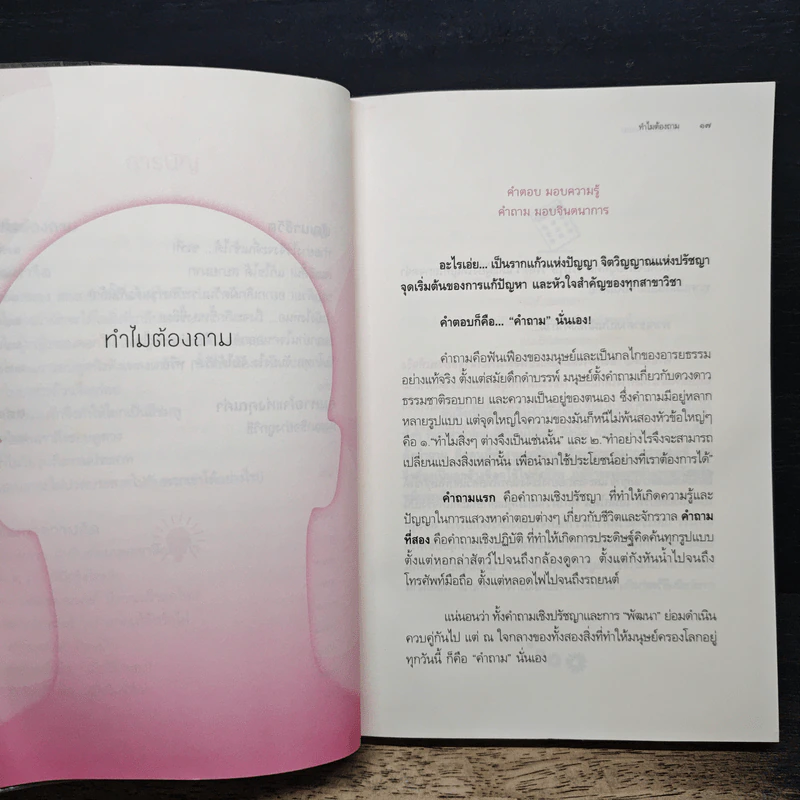 ทำไมต้องถาม
ทำไมต้องถาม ๑๗
คำตอบ มอบความรู้
คำถาม มอบจินตนาการ
อะไรเอ่ย... เป็นรากแก้วแห่งปัญญา จิตวิญญาณแห่งปรัชญา
จุดเริ่มต้นของการแก้ปัญหา และหัวใจสำคัญของทุกสาขาวิชา
คำตอบก็คือ... “คำถาม” นั่นเอง!
คำถามคือฟันเฟืองของมนุษย์และเป็นกลไกของอารยธรรม
อย่างแท้จริง ตั้งแต่สมัยดึกดำบรรพ์ มนุษย์ตั้งคำถามเกี่ยวกับดวงดาว
ธรรมชาติรอบกาย และความเป็นอยู่ของตนเอง ซึ่งคำถามมีอยู่หลาก
หลายรูปแบบ แต่จุดใหญ่ใจความของมันก็หนีไม่พ้นสองหัวข้อใหญ่ๆ
คือ ๑.“ทำไมสิ่งๆ ต่างจึงเป็นเช่นนั้น” และ ๒.“ทำอย่างไรจึงจะสามารถ
เปลี่ยนแปลงสิ่งเหล่านั้น เพื่อนำมาใช้ประโยชน์อย่างที่เราต้องการได้”
คำถามแรก คือคำถามเชิงปรัชญา ที่ทำให้เกิดความรู้และ
ปัญญาในการแสวงหาคำตอบต่างๆ เกี่ยวกับชีวิตและจักรวาล คำถาม
ที่สอง คือคำถามเชิงปฏิบัติ ที่ทำให้เกิดการประดิษฐ์คิดค้นทุกรูปแบบ
ตั้งแต่หอกล่าสัตว์ไปจนถึงกล้องดูดาว ตั้งแต่กังหันน้ำไปจนถึง
โทรศัพท์มือถือ ตั้งแต่หลอดไฟไปจนถึงรถยนต์
แน่นอนว่า ทั้งคำถามเชิงปรัชญาและการ “พัฒนา” ย่อมดำเนิน
ควบคู่กันไป แต่ ณ ใจกลางของทั้งสองสิ่งที่ทำให้มนุษย์ครองโลกอยู่
ทุกวันนี้ ก็คือ “คำถาม” นั่นเอง